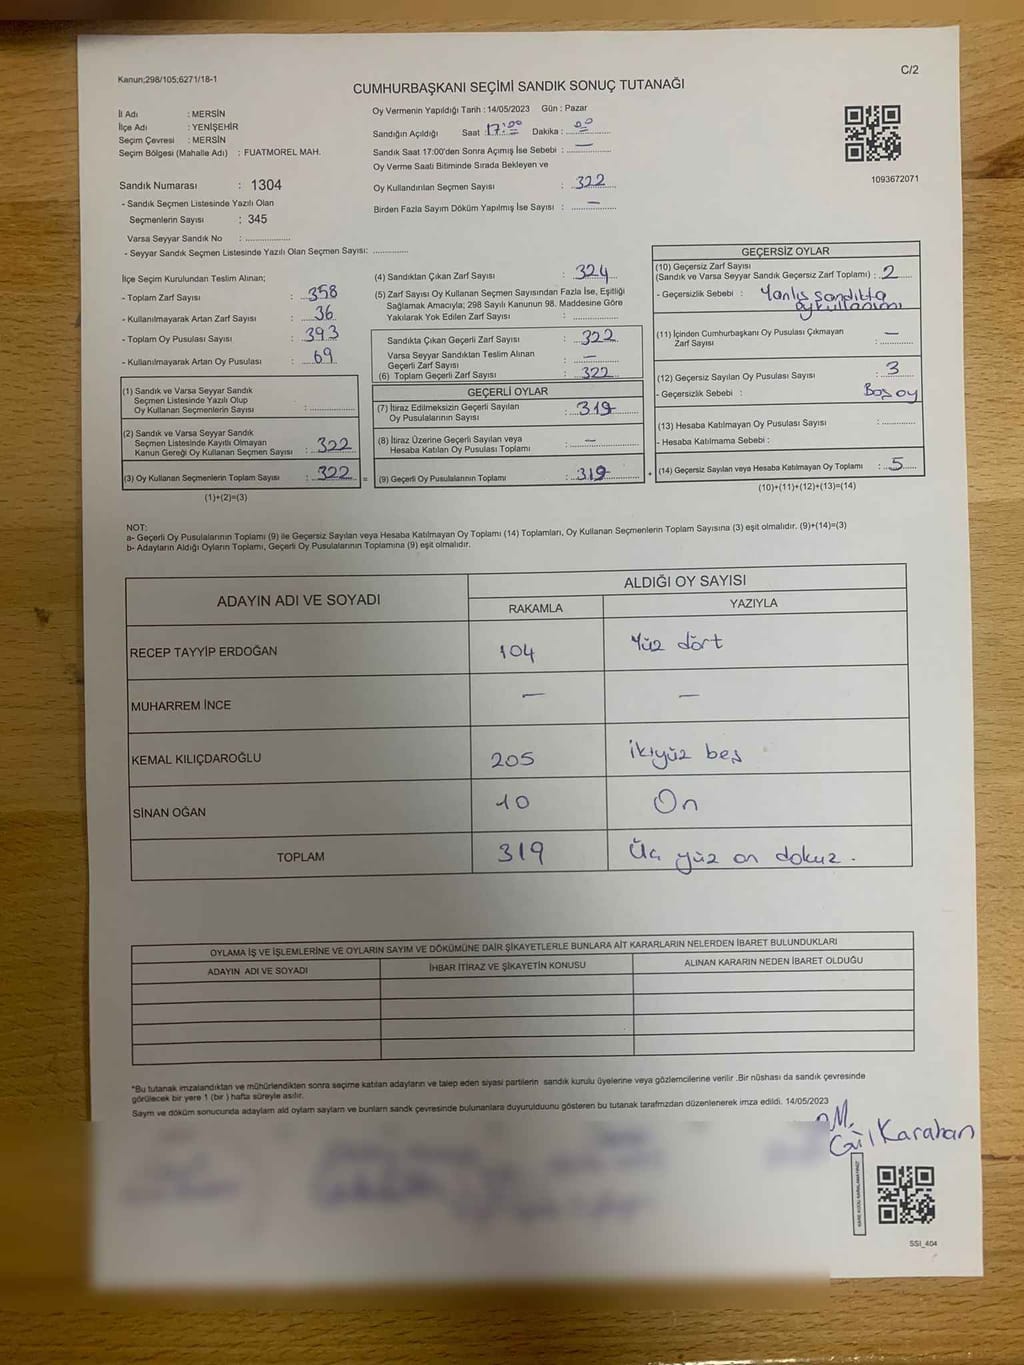 Kanun;298/105;6271/18-1
C/2
CUMHURBAŞKANI SEÇİMİ SANDIK SONUÇ TUTANAĞI
İl Adı : MERSİN
İlçe Adı : YENİŞEHİR
Seçim Çevresi : MERSİN
Seçim Bölgesi (Mahalle Adı) : FUATMOREL MAH.
Sandık Numarası : 1304
- Sandık Seçmen Listesinde Yazılı Olan
Seçmenlerin Sayısı : 345
Varsa Seyyar Sandık No : ................
- Seyyar Sandık Seçmen Listesinde Yazılı Olan Seçmen Sayısı: ............
Oy Vermenin Yapıldığı Tarih : 14/05/2023 Gün : Pazar
Sandığın Açıldığı Saat 17:00 Dakika : 00
Sandık Saat 17:00'den Sonra Açımış İse Sebebi : —
Oy Verme Saati Bitiminde Sırada Bekleyen ve
Oy Kullandırılan Seçmen Sayısı : 322
Birden Fazla Sayım Döküm Yapılmış İse Sayısı : —
1093672071
İlçe Seçim Kurulundan Teslim Alınan;
- Toplam Zarf Sayısı : 358
- Kullanılmayarak Artan Zarf Sayısı : 36
- Toplam Oy Pusulası Sayısı : 393
- Kullanılmayarak Artan Oy Pusulası : 69
(1) Sandık ve Varsa Seyyar Sandık
Seçmen Listesinde Yazılı Olup
Oy Kullanan Seçmenlerin Sayısı : ................
(2) Sandık ve Varsa Seyyar Sandık
Seçmen Listesinde Kayıtlı Olmayan
Kanun Gereği Oy Kullanan Seçmen Sayısı : 322
(3) Oy Kullanan Seçmenlerin Toplam Sayısı : 322 =
(1)+(2)=(3)
(4) Sandıktan Çıkan Zarf Sayısı : 324
(5) Zarf Sayısı Oy Kullanan Seçmen Sayısından Fazla İse, Eşitliği
Sağlamak Amacıyla; 298 Sayılı Kanunun 98. Maddesine Göre
Yakılarak Yok Edilen Zarf Sayısı : ................
Sandıkta Çıkan Geçerli Zarf Sayısı : 322
Varsa Seyyar Sandıktan Teslim Alınan
Geçerli Zarf Sayısı : —
(6) Toplam Geçerli Zarf Sayısı : 322
GEÇERLİ OYLAR
(7) İtiraz Edilmeksizin Geçerli Sayılan
Oy Pusulasının Sayısı : 319
(8) İtiraz Üzerine Geçerli Sayılan veya
Hesaba Katılan Oy Pusulası Toplamı : —
(9) Geçerli Oy Pusulalarının Toplamı : 319 +
GEÇERSİZ OYLAR
(10) Geçersiz Zarf Sayısı
(Sandık ve Varsa Seyyar Sandık Geçersiz Zarf Toplamı) : 2
- Geçersizlik Sebebi : Yanlış sandıkta
oy kullanımı
(11) İçinden Cumhurbaşkanı Oy Pusulası Çıkmayan
Zarf Sayısı : —
(12) Geçersiz Sayılan Oy Pusulası Sayısı : 3
- Geçersizlik Sebebi : Boş oy
(13) Hesaba Katılmayan Oy Pusulası Sayısı : ............
- Hesaba Katılmama Sebebi :
(14) Geçersiz Sayılan veya Hesaba Katılmayan Oy Toplamı : 5
(10)+(11)+(12)+(13)=(14)
NOT:
a- Geçerli Oy Pusulalarının Toplamı (9) ile Geçersiz Sayılan veya Hesaba Katılmayan Oy Toplamı (14) Toplamları, Oy Kullanan Seçmenlerin Toplam Sayısına (3) eşit olmalıdır. (9)+(14)=(3)
b- Adayların Aldığı Oyların Toplamı, Geçerli Oy Pusulalarının Toplamına (9) eşit olmalıdır.
ADAYIN ADI VE SOYADI
ALDIĞI OY SAYISI
RAKAMLA YAZIYLA
RECEP TAYYİP ERDOĞAN 104 Yüz dört
MUHARREM İNCE — —
KEMAL KILIÇDAROĞLU 205 ikiyüz beş
SİNAN OĞAN 10 On
TOPLAM 319 Üç yüz on dokuz.
OYLAMA İŞ VE İŞLEMLERİNE VE OYLARIN SAYIM VE DÖKÜMÜNE DAİR ŞİKAYETLERLE BUNLARA AİT KARARLARIN NELERDEN İBARET BULUNDUKLARI
ADAYIN ADI VE SOYADI İHBAR İTİRAZ VE ŞİKAYETİN KONUSU ALINAN KARARIN NEDEN İBARET OLDUĞU
*Bu tutanak imzalandıktan ve mühürlendikten sonra seçime katılan adayların ve talep eden siyasi partilerin sandık kurulu üyelerine veya gözlemcilerine verilir .Bir nüshası da sandık çevresinde
görülecek bir yere 1 (bir ) hafta süreyle asılır.
Sayım ve döküm sonucunda adayların ald oylam saylam ve bunlarn sandk çevresinde bulunanlara duyurulduunu gösteren bu tutanak tarafmzdan düzenlenerek imza edildi. 14/05/2023
M.
Gül Karahan
SSI_404